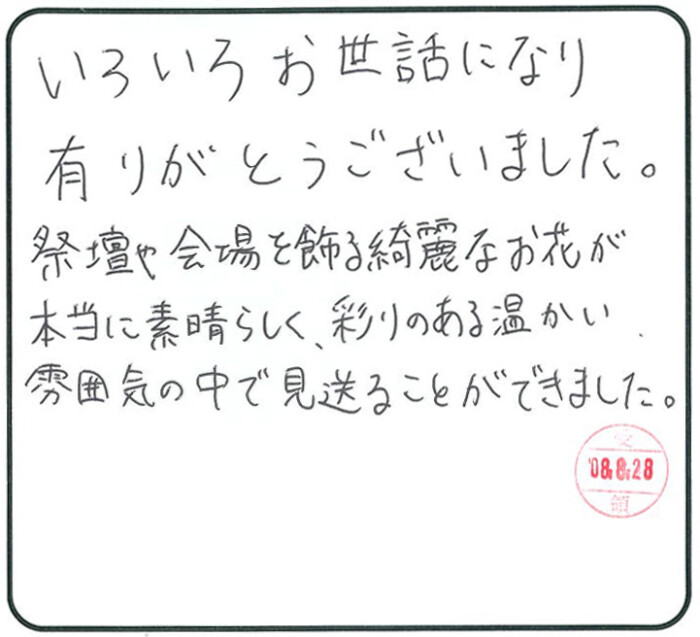 いろいろお世話になり
有りがとうございました。
祭壇や会場を飾る綺麗なお花が
本当に素晴らしく、彩りのある温かい
雰囲気の中で見送ることができました。
受
'08.8.28
領